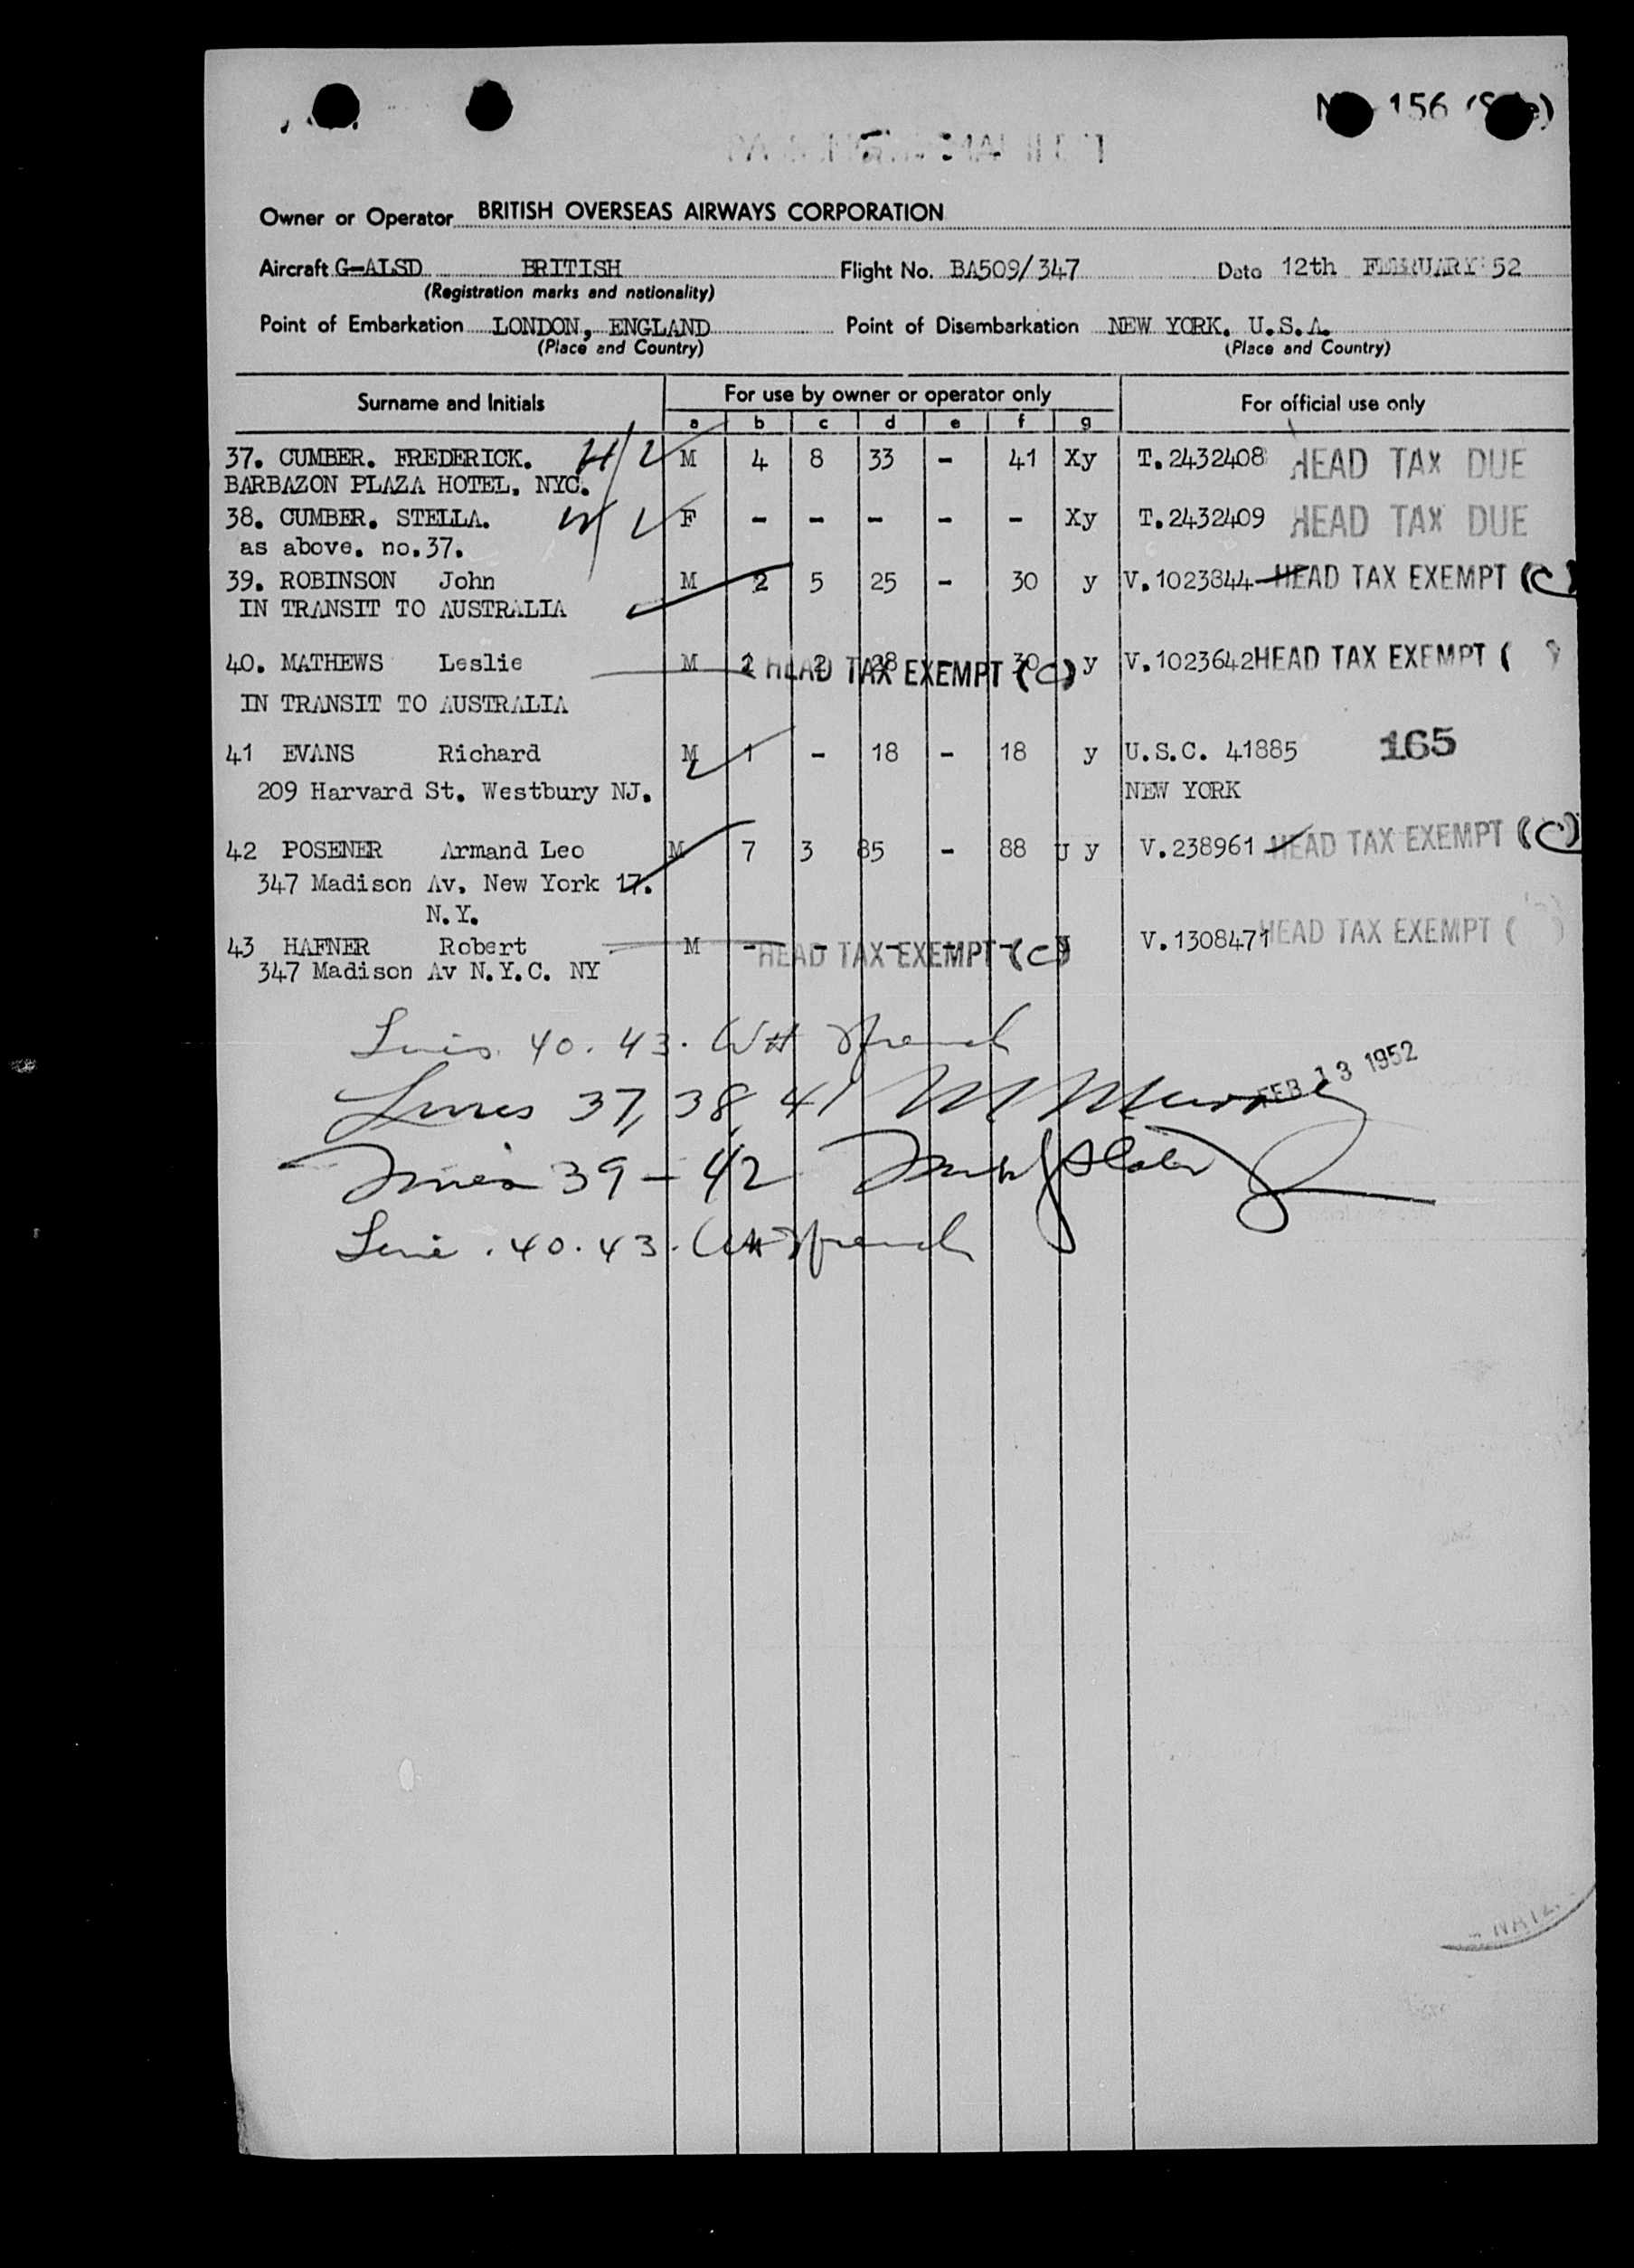 156
Owner or Operator BRITISH OVERSEAS AIRWAYS CORPORATION
Aircraft G-ALSD BRITISH Flight No. BA509/347 Date 12th FEBRUARY 52
(Registration marks and nationality)
Point of Embarkation LONDON, ENGLAND Point of Disembarkation NEW YORK. U.S.A.
(Place and Country) (Place and Country)
Surname and Initials For use by owner or operator only For official use only
a b c d e f g
37. CUMBER. FREDERICK. M 4 8 33 - 41 Xy T.2432408 HEAD TAX DUE
BARBAZON PLAZA HOTEL. NYC.
38. CUMBER. STELLA. F - - - - - Xy T.2432409 HEAD TAX DUE
as above. no.37.
39. ROBINSON John M 2 5 25 - 30 y V.1023844 HEAD TAX EXEMPT (C)
IN TRANSIT TO AUSTRALIA
40. MATHEWS Leslie M 2 2 28 - 30 y V.1023642 HEAD TAX EXEMPT (
HEAD TAX EXEMPT (C)
IN TRANSIT TO AUSTRALIA
41 EVANS Richard M 1 - 18 - 18 y U.S.C. 41885 165
209 Harvard St. Westbury NJ. NEW YORK
42 POSENER Armand Leo M 7 3 85 - 88 U y V.238961 HEAD TAX EXEMPT (C)
347 Madison Av. New York 17.
N.Y.
43 HAFNER Robert M - - - - - V.1308471 HEAD TAX EXEMPT ( )
HEAD TAX EXEMPT (C)
347 Madison Av N.Y.C. NY
Lines 40. 43.
FEB 13 1952
Lines 37, 38, 41
Lines 39 - 42
Line . 40. 43.